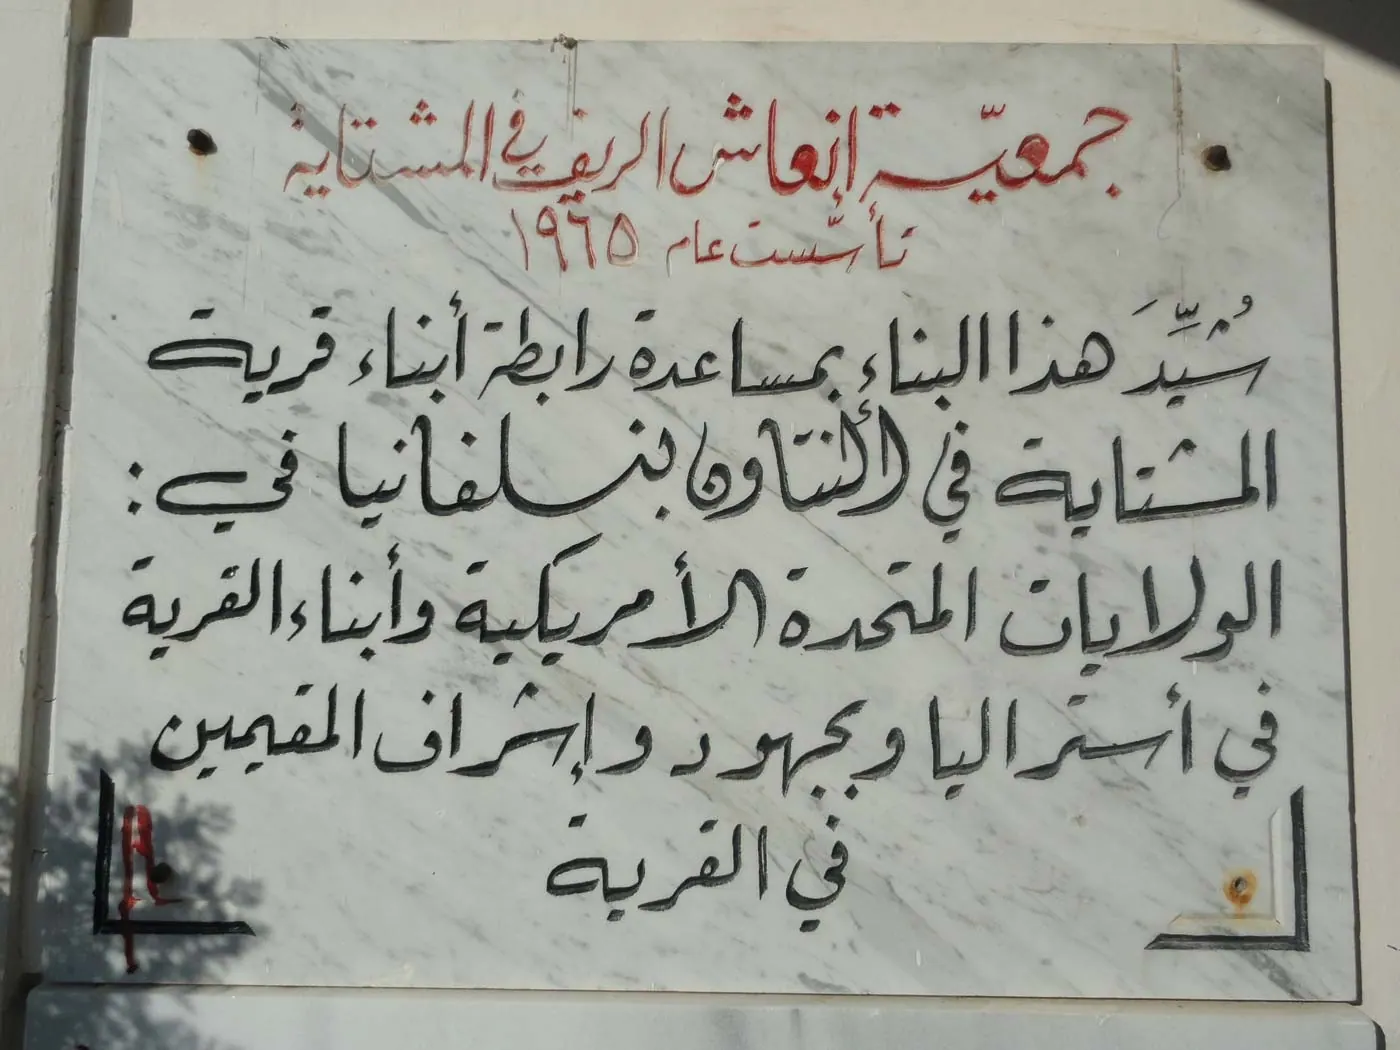 جمعيّة إنعاش الريف في المشتاية
تأسّست عام ١٩٦٥
شُيِّدَ هذا البناء بمساعدة رابطة أبناء قرية
المشتاية في ألنتاون بنسلفانيا في :
الولايات المتحدة الأمريكية وأبناء القرية
في أستراليا وبجهود وإشراف المقيمين
في القرية